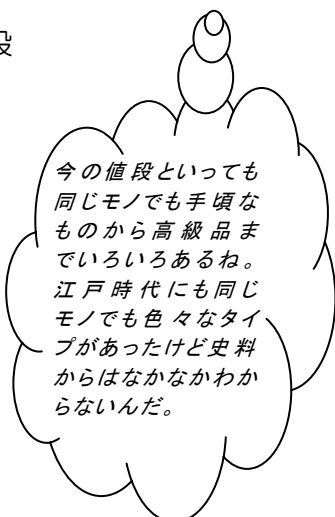 段
今の値段といっても
同じモノでも手頃な
ものから高級品ま
でいろいろあるね。
江戸時代にも同じ
モノでも色々なタイ
プがあったけど史料
からはなかなかわか
らないんだ。